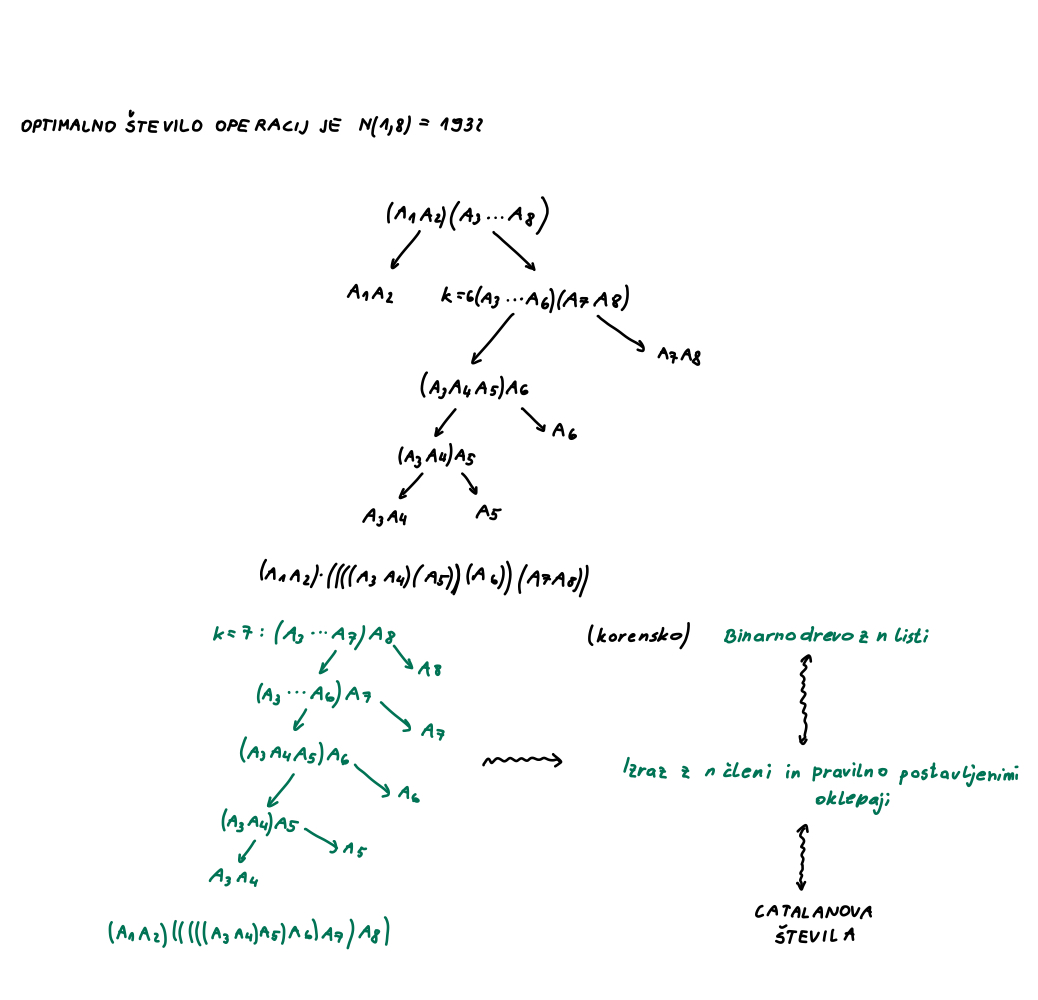 OPTIMALNO ŠTEVILO OPERACIJ JE N(1,8) = 1932
(A1 A2)(A3 ... A8)
A1 A2
k=6(A3 ... A6)(A7 A8)
A7 A8
(A3 A4 A5) A6
A6
(A3 A4) A5
A3 A4
A5
(A1 A2)·((((A3 A4)(A5))(A6))(A7 A8))
k=7: (A3 ... A7) A8
A8
(A3 ... A6) A7
A7
(A3 A4 A5) A6
A6
(A3 A4) A5
A5
A3 A4
(A1 A2)(((((A3 A4) A5) A6) A7) A8)
(korensko) Binarno drevo z n listi
Izraz z n členi in pravilno postavljenimi
oklepaji
CATALANOVA
ŠTEVILA